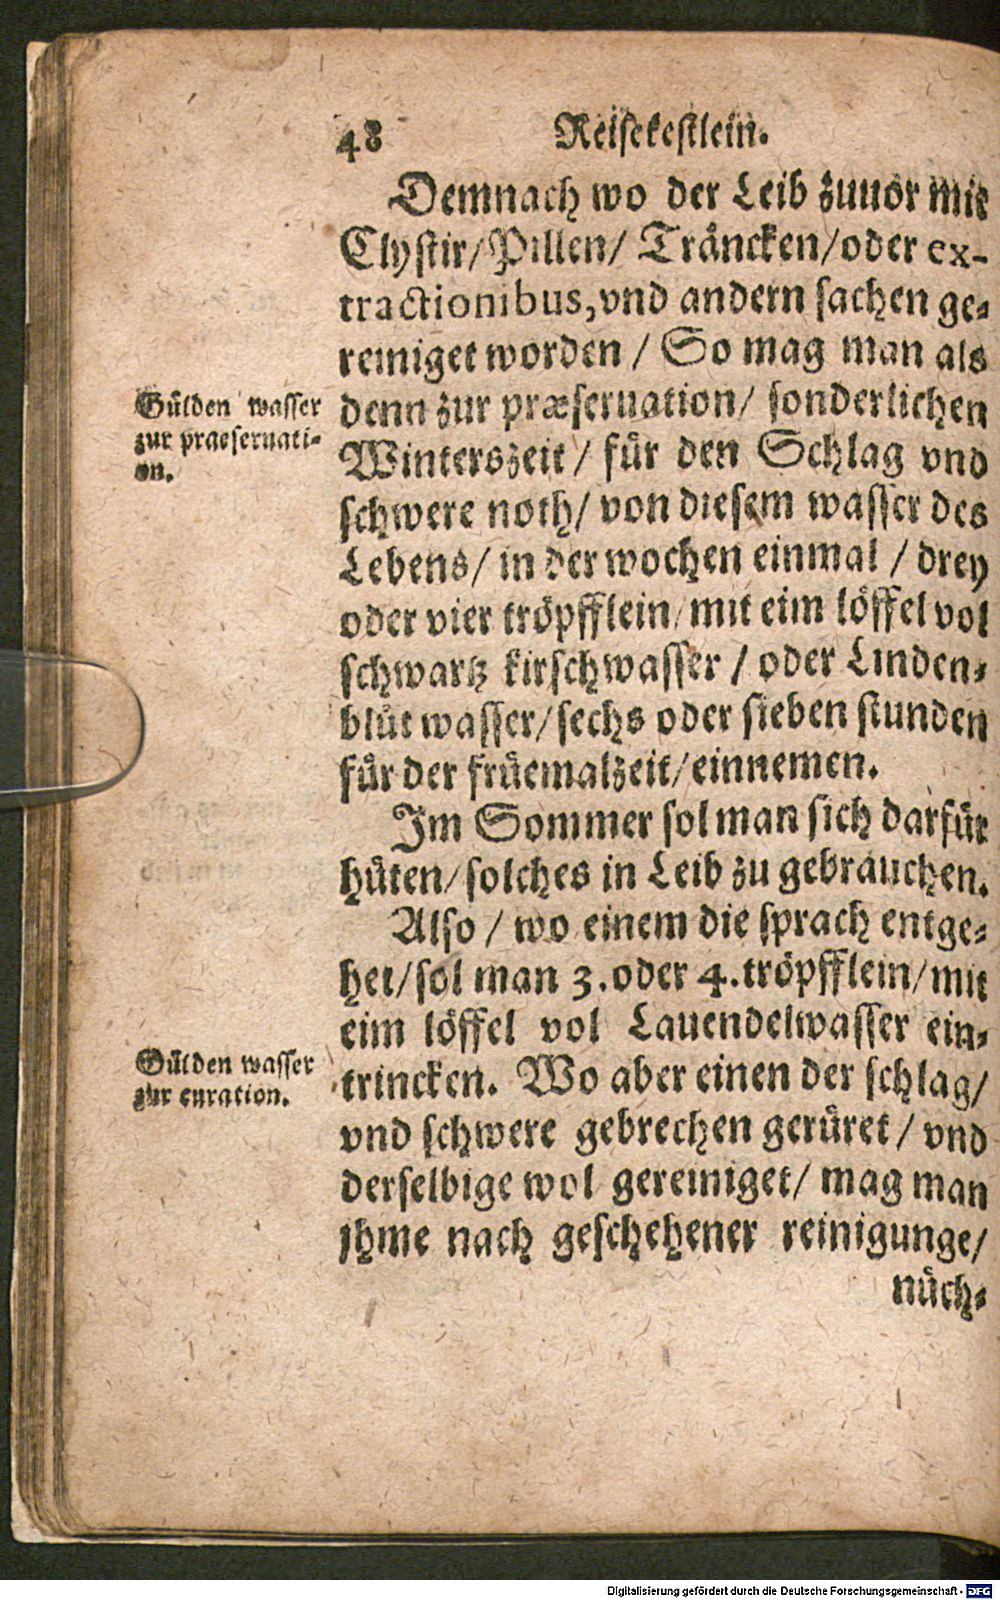 48 Reisekestlein.
Demnach wo der Leib zuuor mit
Clystir/ Pillen/ Träncken/ oder ex-
tractionibus, vnd andern sachen ge-
reiniget worden / So mag man als
denn zur præseruation/ sonderlichen
Winterszeit / für den Schlag vnd
schwere noth/ von diesem wasser des
Lebens/ in der wochen einmal / drey
oder vier tröpfflein/ mit eim löffel vol
schwartz kirschwasser / oder Linden-
blüt wasser/ sechs oder sieben stunden
für der früemalzeit/ einnemen.
Im Sommer sol man sich darfür
hüten/ solches in Leib zu gebrauchen.
Also / wo einem die sprach entge-
het/ sol man 3. oder 4. tröpfflein/ mit
eim löffel vol Lauendelwasser ein-
trincken. Wo aber einen der schlag/
vnd schwere gebrechen gerüret / vnd
derselbige wol gereiniget/ mag man
jhme nach geschehener reinigunge/
nüch-
Gülden wasser
zur praeseruati-
on.
Gülden wasser
zur curation.
Digitalisierung gefördert durch die Deutsche Forschungsgemeinschaft - DFG